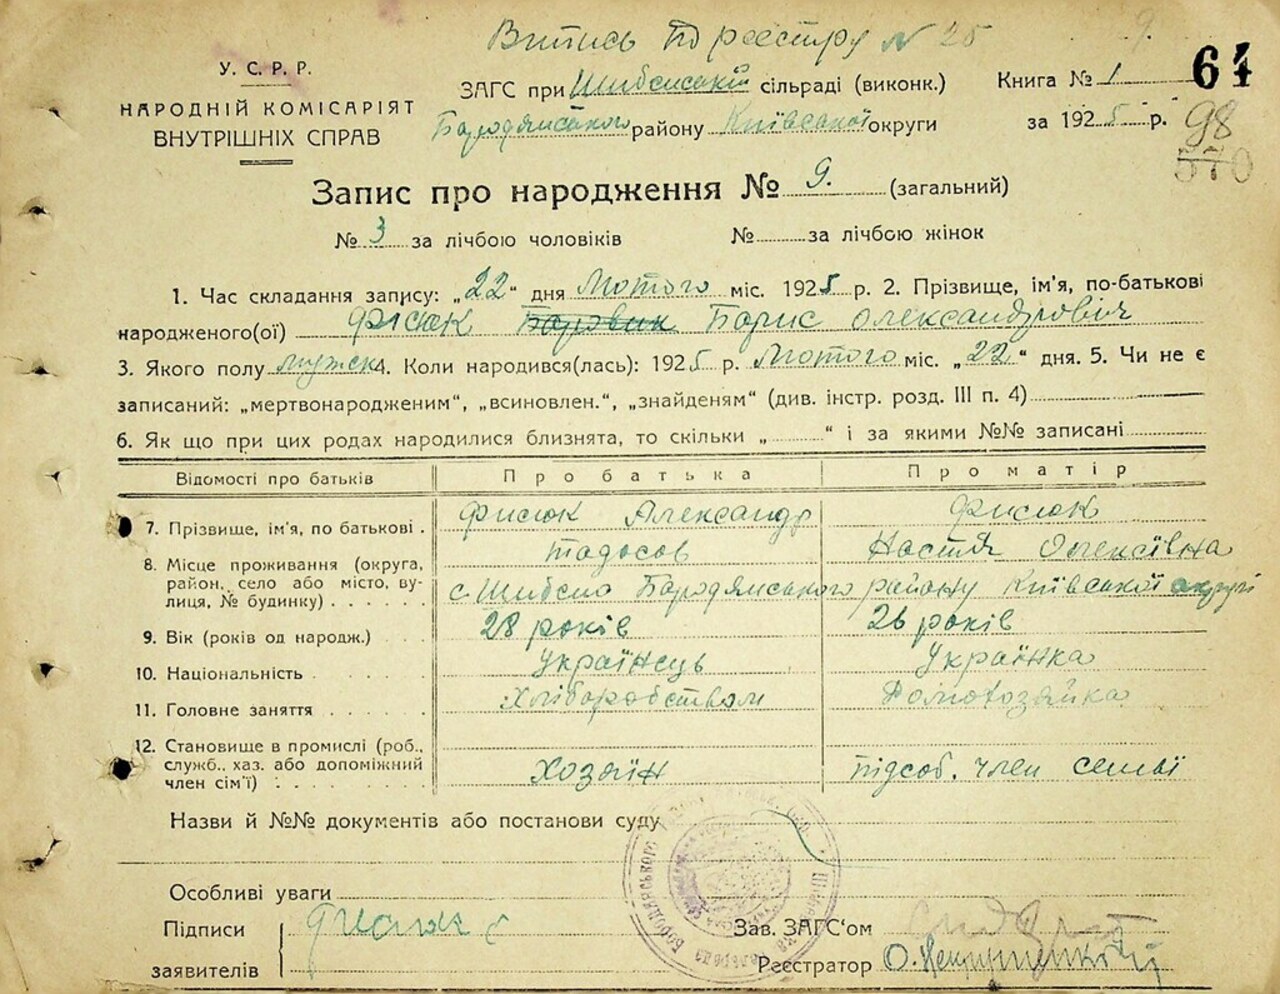 Випись по реєстру N 25
9.
У. С. Р. Р.
НАРОДНІЙ КОМІСАРІЯТ
ВНУТРІШНІХ СПРАВ
ЗАГС при Шибенській сільраді (виконк.)
Бародянського району Київської округи
Книга № 1
за 1925 р.
64
98
570
Запис про народження № 9. (загальний)
№ 3 за лічбою чоловіків № за лічбою жінок
1. Час складання запису: „22“ дня Лютого міс. 1925 р. 2. Прізвище, ім'я, по-батькові
народженого(ої) Фисюк Боровик Борис Олександрович
3. Якого полу мужск 4. Коли народився(лась): 1925 р. Лютого міс. „22“ дня. 5. Чи не є
записаний: „мертвонародженим“, „всиновлен.“, „знайденям“ (див. інстр. розд. III п. 4)
6. Як що при цих родах народилися близнята, то скільки „ “ і за якими №№ записані
Відомості про батьків Про батька Про матір
7. Прізвище, ім'я, по батькові . Фисюк Александр Фисюк
тадосов Настя Олексіївна
8. Місце проживання (округа,
район, село або місто, ву-
лиця, № будинку) . . . . . с. Шибено Бародянського району Київської округі
9. Вік (років од народж.) 28 років 26 років
10. Національність Українець Українка
11. Головне заняття Хліборобством Домохозяйка
12. Становище в промислі (роб.,
служб., хаз. або допоміжний
член сім'ї) : Хозяїн підсоб. член семьї
Назви й №№ документів або постанови суду
Особливі уваги
Підписи
заявителів
Зав. ЗАГС'ом
Реєстратор О.